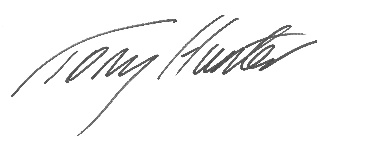 Tony Hunter